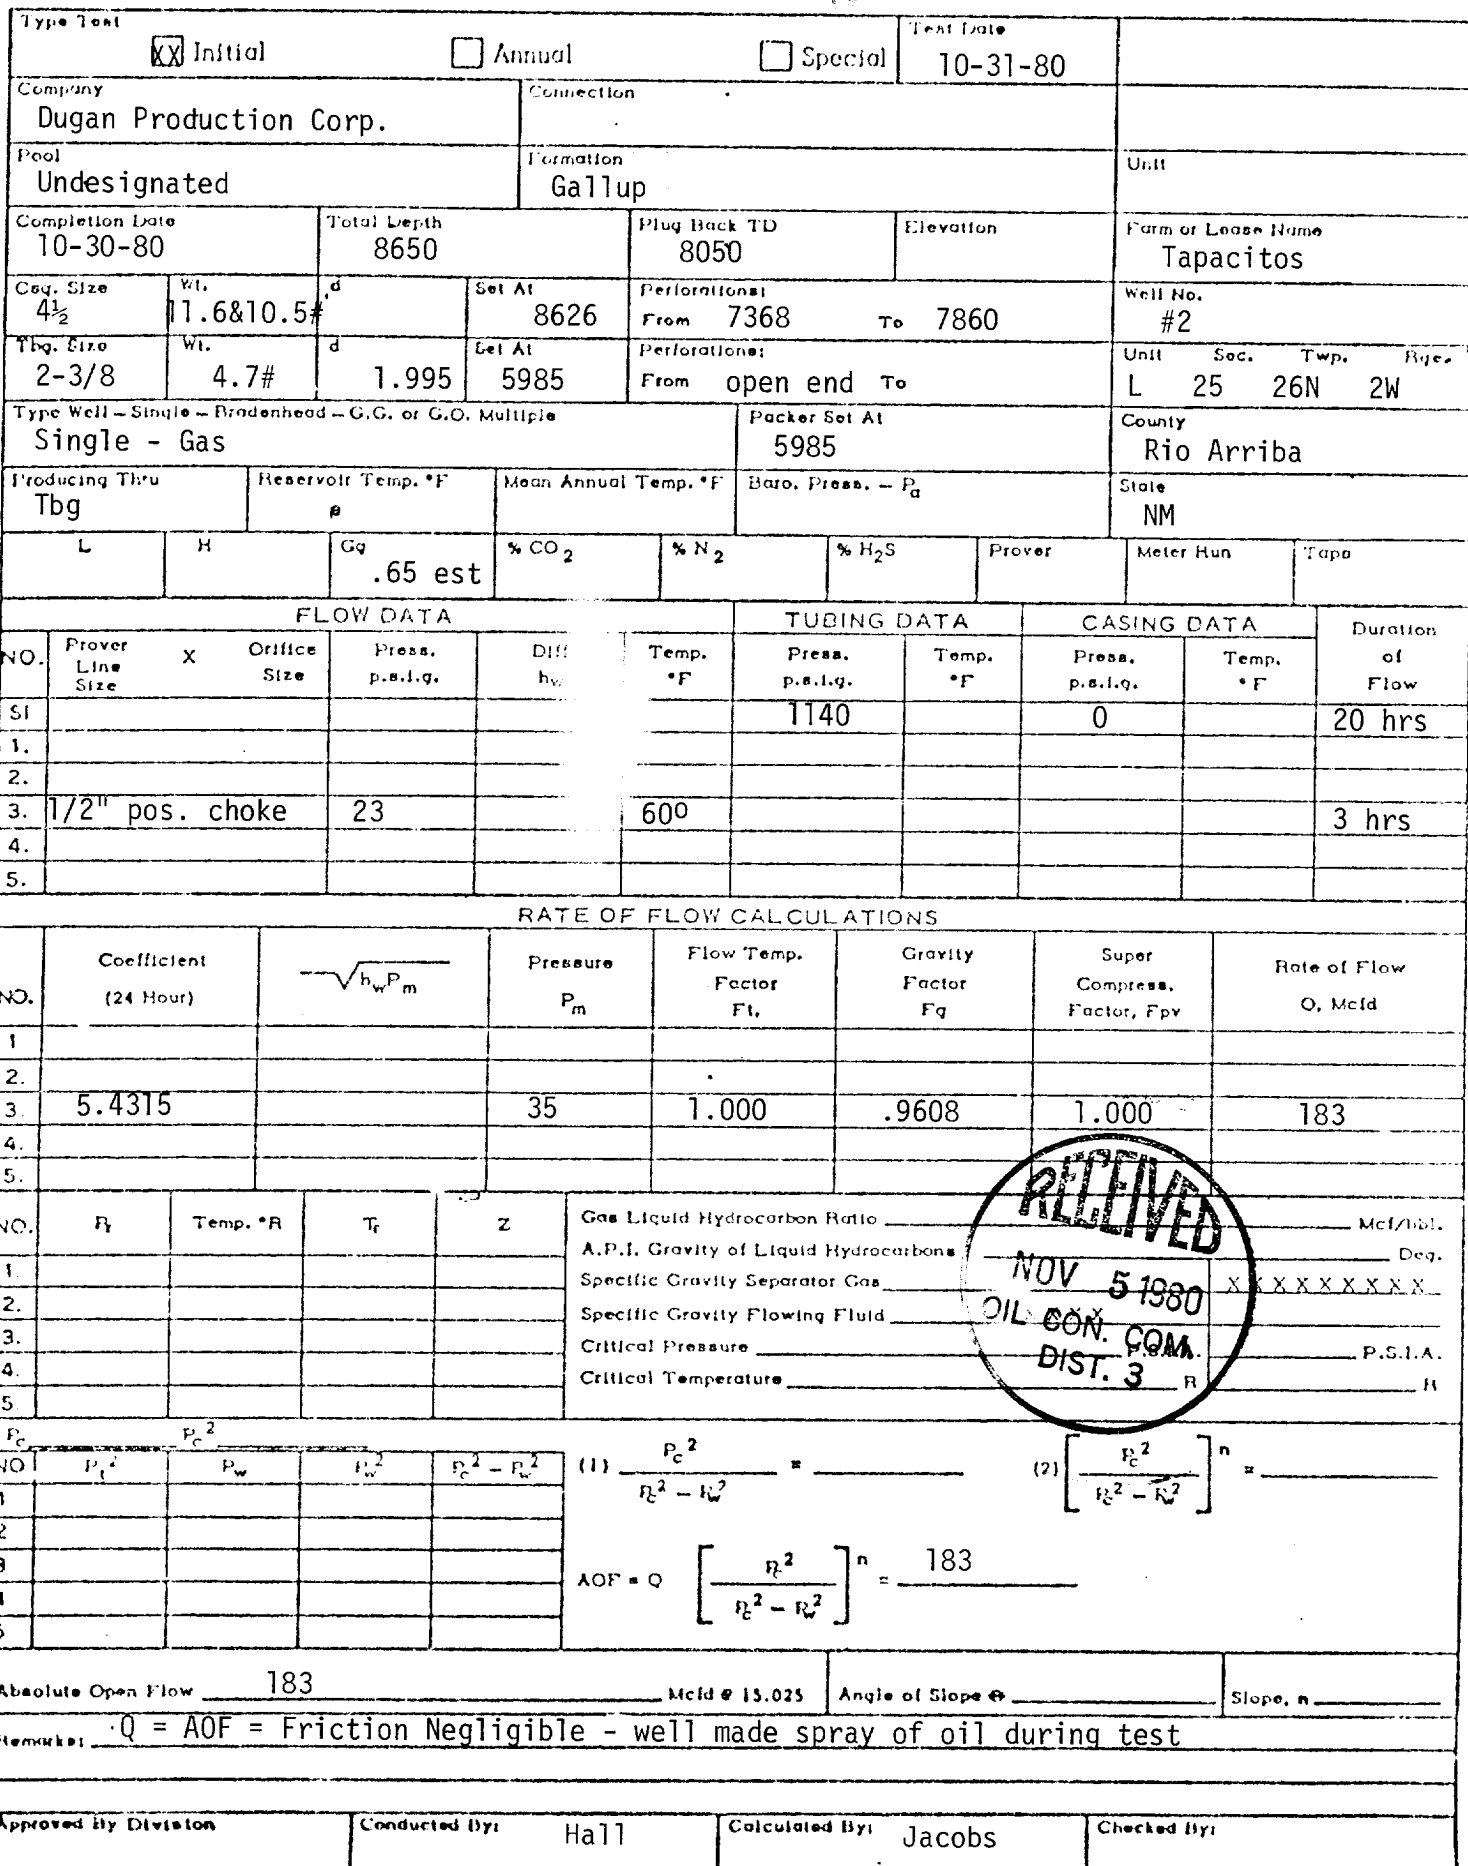 Type Test
XX Initial Annual Special
Test Date
10-31-80
Company
Dugan Production Corp.
Connection
Pool
Undesignated
Formation
Gallup
Unit
Completion Date
10-30-80
Total Depth
8650
Plug Back TD
8050
Elevation
Farm or Lease Name
Tapacitos
Csg. Size
4½
Wt.
11.6&10.5#
d
Set At
8626
Perforations:
From 7368 To 7860
Well No.
#2
Tbg. Size
2-3/8
Wt.
4.7#
d
1.995
Set At
5985
Perforations:
From open end To
Unit Sec. Twp. Rge.
L 25 26N 2W
Type Well - Single - Bradenhead - G.G. or G.O. Multiple
Single - Gas
Packer Set At
5985
County
Rio Arriba
Producing Thru
Tbg
Reservoir Temp. °F
Mean Annual Temp. °F
Baro. Press. - Pa
State
NM
L
H
Gg
.65 est
% CO2
% N2
% H2S
Prover
Meter Run
Taps
FLOW DATA
TUBING DATA
CASING DATA
Duration of Flow
NO.
Prover Line Size X Orifice Size
Press. p.s.i.g.
Diff hw
Temp. °F
Press. p.s.i.g.
Temp. °F
Press. p.s.i.g.
Temp. °F
SI 1140 0 20 hrs
1.
2.
3. 1/2" pos. choke 23 60° 3 hrs
4.
5.
RATE OF FLOW CALCULATIONS
NO.
Coefficient (24 Hour)
√hwPm
Pressure Pm
Flow Temp. Factor Ft.
Gravity Factor Fg
Super Compress. Factor, Fpv
Rate of Flow Q, Mcfd
1
2.
3. 5.4315 35 1.000 .9608 1.000 183
4.
5.
NO. Pr Temp. °R Tr Z
1.
2.
3.
4.
5
Gas Liquid Hydrocarbon Ratio Mcf/bbl.
A.P.I. Gravity of Liquid Hydrocarbons Deg.
Specific Gravity Separator Gas X X X X X X X X X
Specific Gravity Flowing Fluid
Critical Pressure P.S.I.A. P.S.I.A.
Critical Temperature R R
RECEIVED
NOV 5 1980
OIL CON. COM.
DIST. 3
Pc Pc²
NO Pt² Pw Pw² Pc² - Pw²
1
2
3
4
5
(1) Pc² / Pc² - Pw² =
(2) [Pc² / Pc² - Pw²]ⁿ =
AOF = Q [Pc² / Pc² - Pw²]ⁿ = 183
Absolute Open Flow 183 Mcfd @ 15.025
Angle of Slope θ
Slope, n
Remarks: Q = AOF = Friction Negligible - well made spray of oil during test
Approved By Division
Conducted By: Hall
Calculated By: Jacobs
Checked By: